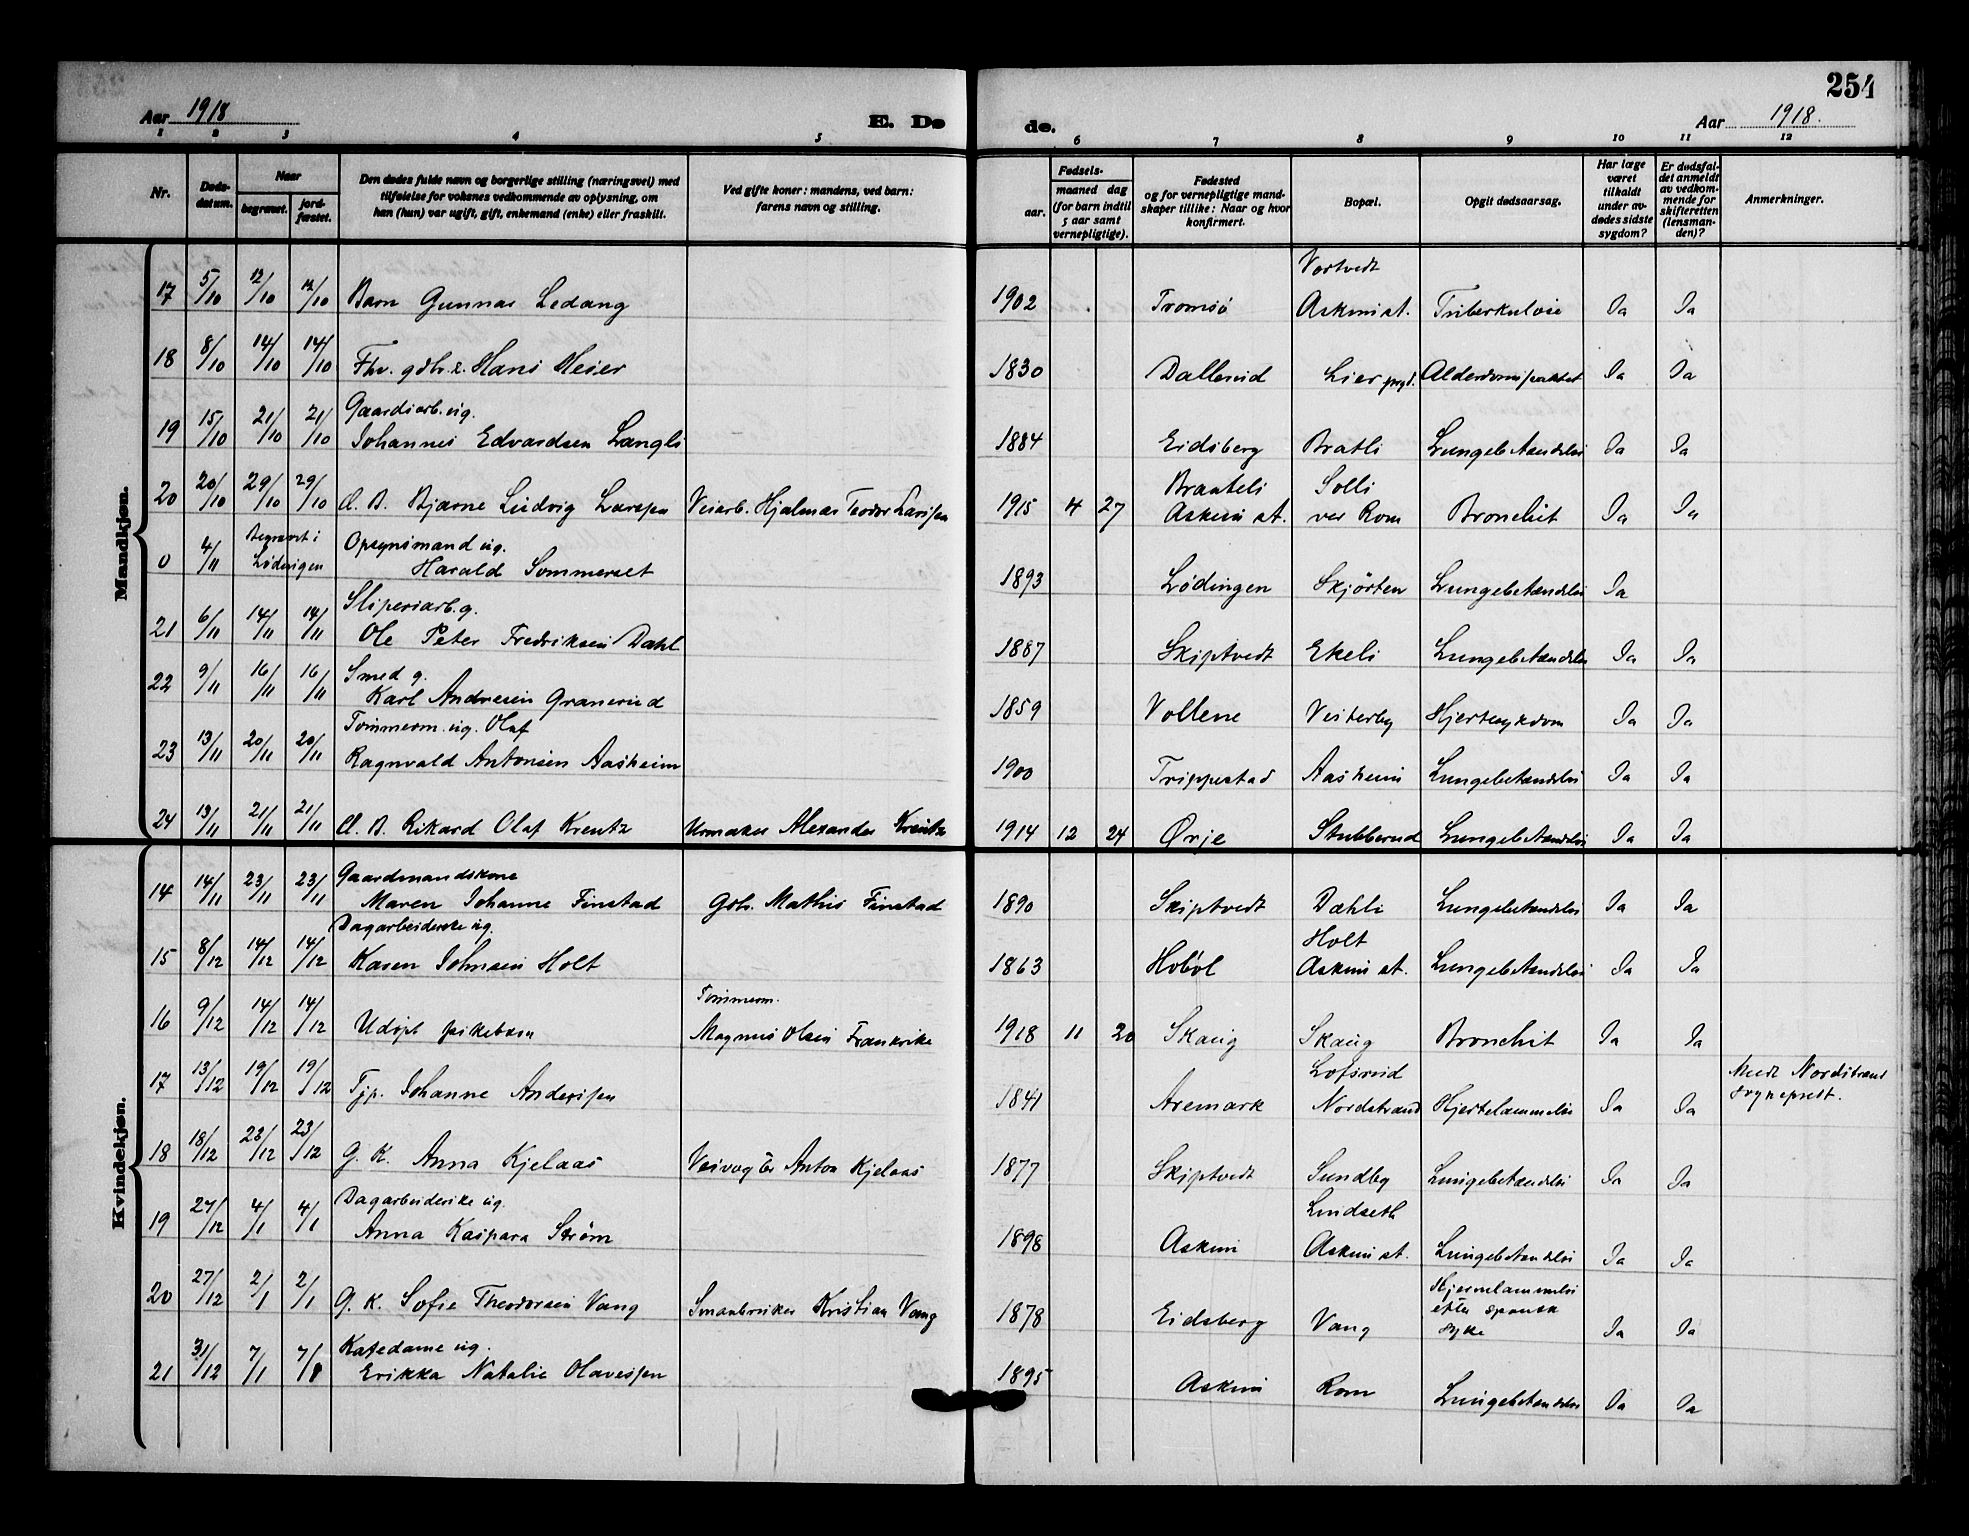 254
Aar 1918
E. Dø
de.
Aar 1918.
1 2 3 4 5 6 7 8 9 10 11 12
Nr.
Døds-
datum.
Naar
begravet.
jord-
fæstet.
Den dødes fulde navn og borgerlige stilling (næringsvei) med
tilføielse for voksnes vedkommende av oplysning, om
han (hun) var ugift, gift, enkemand (enke) eller fraskilt.
Ved gifte koner: mandens, ved barn:
farens navn og stilling.
Fødsels-
aar.
maaned dag
(for barn indtil
5 aar samt
vernepligtige).
Fødested
og for vernepligtige mand-
skaper tillike: Naar og hvor
konfirmert.
Bopæl.
Opgit dødsaarsag.
Har læge
været
tilkaldt
under av-
dødes sidste
sygdom?
Er dødsfal-
det anmeldt
av vedkom-
mende for
skifteretten
(lensman-
den)?
Anmerkninger.
Mandkjøn.
Vortvedt
17 5/10 12/10 12/10 Barn Gunnar Ledang 1902 Tromsø Askim st. Tuberkulose Ja Ja
18 8/10 14/10 14/10 Fhv. gdbr. Hans Heier 1830 Dallerud Lier prgd. Alderdomssvakhet Ja Ja
Gaardsarb. ug.
19 15/10 21/10 21/10 Johannes Edvardsen Langli 1884 Eidsberg Bratli Lungebetændelse Ja Ja
Braateli Solli
20 20/10 29/10 29/10 E. B. Bjarne Ludvig Larssen Veiarb. Hjalmar Teodor Larssen 1915 4 27 Askim st. ver Rom Bronchit Ja Ja
Begravet i Opsynsmand ug.
0 4/11 Lødingen Harald Sommerset 1893 Lødingen Skjørten Lungebetændelse Ja
Sliperiarb. g.
21 6/11 14/11 14/11 Ole Peter Fredriksen Dahl 1887 Skiptvedt Ekeli Lungebetændelse Ja Ja
Smed g.
22 9/11 16/11 16/11 Karl Andresen Granerud 1859 Vollene Vesterby Hjertesykdom Ja Ja
Tømmerm. ug. Olaf
23 13/11 20/11 20/11 Ragnvald Antonsen Aasheim 1900 Trippestad Aasheim Lungebetændelse Ja Ja
24 13/11 21/11 21/11 E. B. Rikard Olaf Kreutz Urmaker Alexander Kreutz 1914 12 24 Ørje Stubberud Lungebetændelse Ja Ja
Kvindekjøn.
Gaardmandskone
14 14/11 23/11 23/11 Maren Johanne Finstad Gbr. Mathis Finstad 1890 Skiptvedt Dæhli Lungebetændelse Ja Ja
Dagarbeiderske ug. Holt
15 8/12 14/12 14/12 Karen Johnsen Holt 1863 Hobøl Askim st. Lungebetændelse Ja Ja
Tømmerm.
16 9/12 14/12 14/12 Udøpt pikebarn Magnus Olsen Frankrike 1918 11 20 Skaug Skaug Bronchit Ja Ja
Lofsrud Meldt Nordstrand
17 13/12 19/12 19/12 Tjp. Johanne Anderssen 1841 Aremark Nordstrand Hjertelammelse Ja Ja sogneprest.
18 18/12 23/12 23/12 G. K. Anna Kjelaas Anton Kjelaas 1877 Skiptvedt Sundby Lungebetændelse Ja Ja
Dagarbeiderske ug. Lundseth
19 27/12 4/1 4/1 Anna Kaspara Strøm 1898 Askim Askim st. Lungebetændelse Ja Ja
Hjernelammelse
efter spansk
20 27/12 2/1 2/1 G. K. Sofie Theodorsen Vang Smaabruker Kristian Vang 1878 Eidsberg Vang syke Ja Ja
Kafedame ug.
21 31/12 7/1 7/1 Erikka Natalie Olavessen 1895 Askim Rom Lungebetændelse Ja Ja